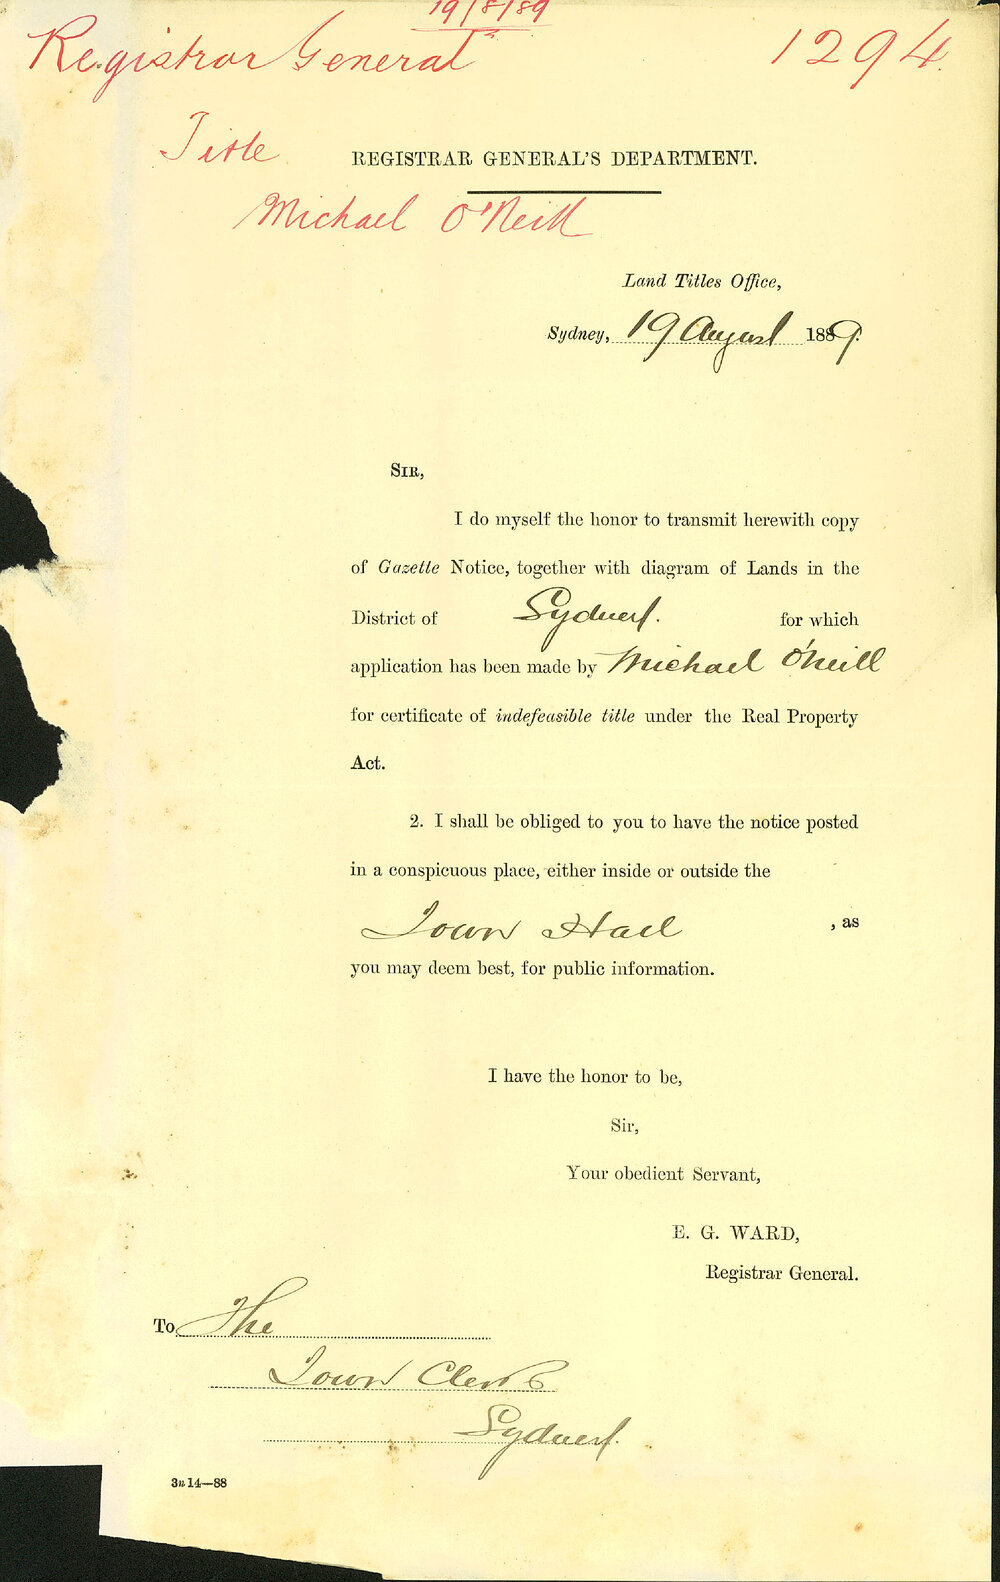 19/8/89
Registrar General 1294
Title
REGISTRAR GENERAL'S DEPARTMENT.
Michael O'Neill
Land Titles Office,
Sydney, 19 August 1889.
SIR,
I do myself the honor to transmit herewith copy
of Gazette Notice, together with diagram of Lands in the
District of Sydney. for which
application has been made by Michael O'Neill
for certificate of indefeasible title under the Real Property
Act.
2. I shall be obliged to you to have the notice posted
in a conspicuous place, either inside or outside the
Town Hall , as
you may deem best, for public information.
I have the honor to be,
Sir,
Your obedient Servant,
E. G. WARD,
Registrar General.
To The
Town Clerk
Sydney.
3B 14—88